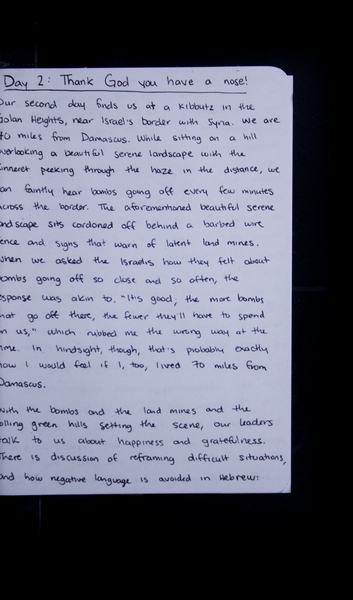 Day 2: Thank God you have a nose!
Our second day finds us at a kibbutz in the
Golan Heights, near Israel's border with Syria. We are
70 miles from Damascus. While sitting on a hill
overlooking a beautiful serene landscape with the
Kinneret peeking through the haze in the distance, we
can faintly hear bombs going off every few minutes
across the border. The aforementioned beautiful serene
landscape sits cordoned off behind a barbed wire
fence and signs that warn of latent land mines.
When we asked the Israelis how they felt about
bombs going off so close and so often, the
response was akin to, "It's good; the more bombs
that go off there, the fewer they'll have to spend
on us," which rubbed me the wrong way at the
time. In hindsight, though, that's probably exactly
how I would feel if I, too, lived 70 miles from
Damascus.
With the bombs and the land mines and the
rolling green hills setting the scene, our leaders
talk to us about happiness and gratefulness.
There is discussion of reframing difficult situations,
and how negative language is avoided in Hebrew: